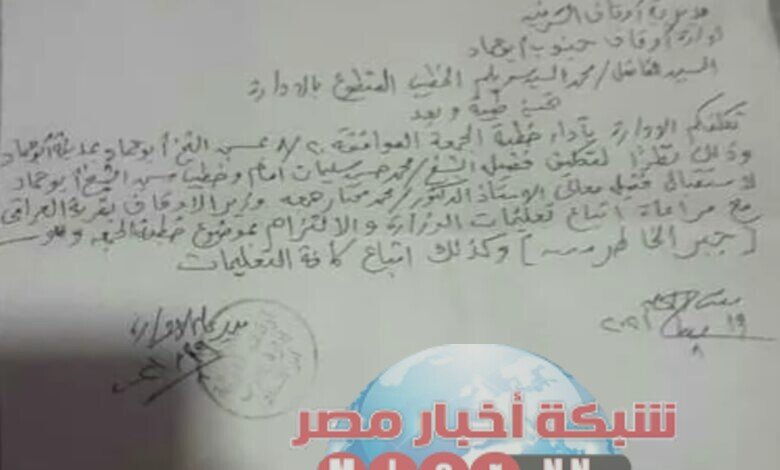 مديرية أوقاف الشرقية
إدارة أوقاف جنوب أبوحماد
السيد الفاضل / محمد السيد سليم الخطيب المتطوع بالإدارة
تحية طيبة وبعد
تكلفكم الإدارة بأداء خطبة الجمعة الموافقة ٢٠/٨ بمسجد الشيخ أبوحماد بمدينة أبوحماد
وذلك نظرًا لتكليف فضيلة الشيخ / محمد حسن سليمان إمام وخطيب مسجد الشيخ أبوحماد
لاستقبال فضيلة معالي الاستاذ الدكتور / محمد مختار جمعه وزير الاوقاف بقرية العراقى
مع مراعاة اتباع تعليمات الوزارة والالتزام بموضوع خطبة الجمعة وهو
[ جبر الخاطر ] وكذلك اتباع كافة التعليمات
مدير عام الإدارة
١٩
٨
٢٠٢١
شبكة أخبار مصر